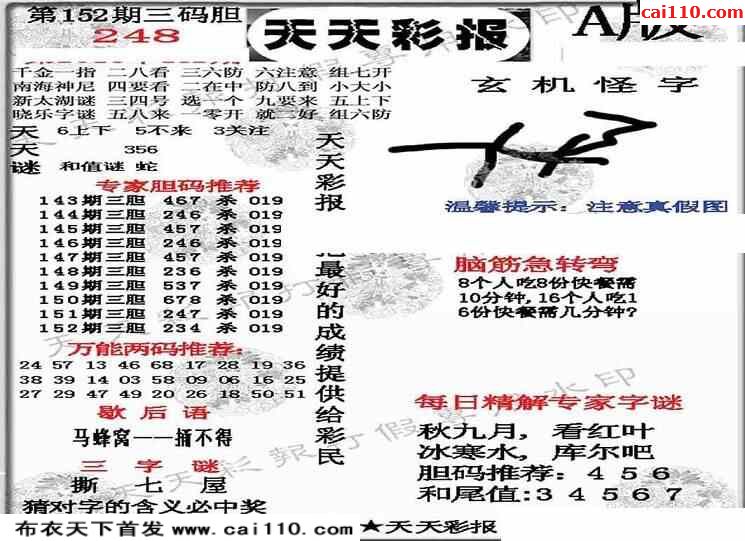 第152期三码胆
248
天天彩报
A版
cai110.com
千金一指 二八看 三六防 六注意 组七开
南海神尼 四要看 二在中 防八到 小大小
新太湖谜 三四号 选一个 九要来 五上下
晓乐字谜 五八来 一零开 就二好 组六防
天 6上下 5不来 3关注
天 356
谜 和值谜 蛇
专家胆码推荐
143期三胆 467 杀 019
144期三胆 246 杀 019
145期三胆 457 杀 019
146期三胆 246 杀 019
147期三胆 457 杀 019
148期三胆 236 杀 019
149期三胆 537 杀 019
150期三胆 678 杀 019
151期三胆 247 杀 019
152期三胆 234 杀 019
万能两码推荐:
24 57 13 46 68 17 28 19 36
38 39 14 03 58 09 06 16 25
27 29 47 49 20 26 18 50 51
歇后语
马蜂窝——捅不得
三字谜
撕 七 屋
猜对字的含义必中奖
天天彩报
最好的成绩提供给彩民
玄机怪字
温馨提示: 注意真假图
脑筋急转弯
8个人吃8份快餐需
10分钟,16个人吃1
6份快餐需几分钟?
每日精解专家字谜
秋九月, 看红叶
冰寒水, 库尔吧
胆码推荐: 4 5 6
和尾值:3 4 5 6 7
布衣天下首发 www.cai110.com ★天天彩报